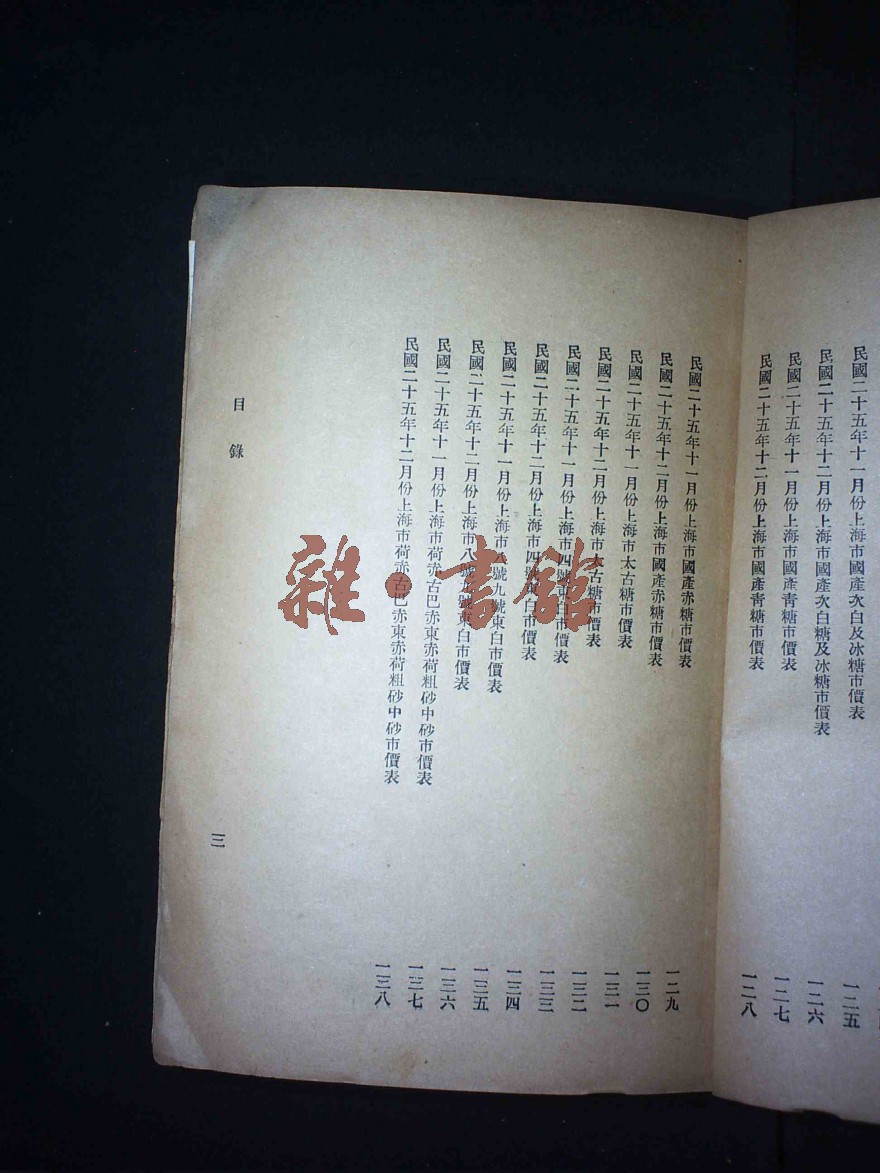 民國二十五年十一月份上海市國產次白及冰糖市價表 一二五
民國二十五年十二月份上海市國產次白糖及冰糖市價表 一二六
民國二十五年十一月份上海市國產青糖市價表 一二七
民國二十五年十二月份上海市國產青糖市價表 一二八
民國二十五年十一月份上海市國產赤糖市價表 一二九
民國二十五年十二月份上海市國產赤糖市價表 一三〇
民國二十五年十一月份上海市太古糖市價表 一三一
民國二十五年十二月份上海市太古糖市價表 一三二
民國二十五年十一月份上海市四號東白市價表 一三三
民國二十五年十二月份上海市四號東白市價表 一三四
民國二十五年十一月份上海市八號九號東白市價表 一三五
民國二十五年十二月份上海市八號九號東白市價表 一三六
民國二十五年十一月份上海市荷赤古巴赤東赤荷粗砂中砂市價表 一三七
民國二十五年十二月份上海市荷赤古巴赤東赤荷粗砂中砂市價表 一三八
目錄
三
雜·書館